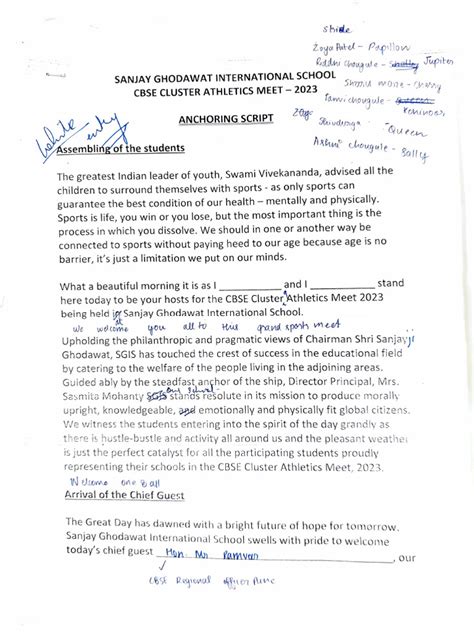 Zoya Patel - Papillon
Riddhi chougule - Jupiter
SANJAY GHODAWAT INTERNATIONAL SCHOOL
CBSE CLUSTER ATHLETICS MEET – 2023
Kohinoor
ANCHORING SCRIPT
Queen
chougule - Sally
entry
Assembling of the students
The greatest Indian leader of youth, Swami Vivekananda, advised all the
children to surround themselves with sports - as only sports can
guarantee the best condition of our health – mentally and physically.
Sports is life, you win or you lose, but the most important thing is the
process in which you dissolve. We should in one or another way be
connected to sports without paying heed to our age because age is no
barrier, it's just a limitation we put on our minds.
What a beautiful morning it is as I ____________ and I ____________ stand
here today to be your hosts for the CBSE Cluster Athletics Meet 2023
being held Sanjay Ghodawat International School.
We welcome you all to this grand sports meet
Upholding the philanthropic and pragmatic views of Chairman Shri Sanjayji
Ghodawat, SGIS has touched the crest of success in the educational field
by catering to the welfare of the people living in the adjoining areas.
Guided ably by the steadfast anchor of the ship, Director Principal, Mrs.
our school
Sasmita Mohanty SGIS stands resolute in its mission to produce morally
upright, knowledgeable, and emotionally and physically fit global citizens.
We witness the students entering into the spirit of the day grandly as
there is hustle-bustle and activity all around us and the pleasant weather
is just the perfect catalyst for all the participating students proudly
representing their schools in the CBSE Cluster Athletics Meet, 2023.
Welcome one & all
Arrival of the Chief Guest
The Great Day has dawned with a bright future of hope for tomorrow.
Sanjay Ghodawat International School swells with pride to welcome
today's chief guest Hon. Mr. , our
CBSE Regional officer Pune